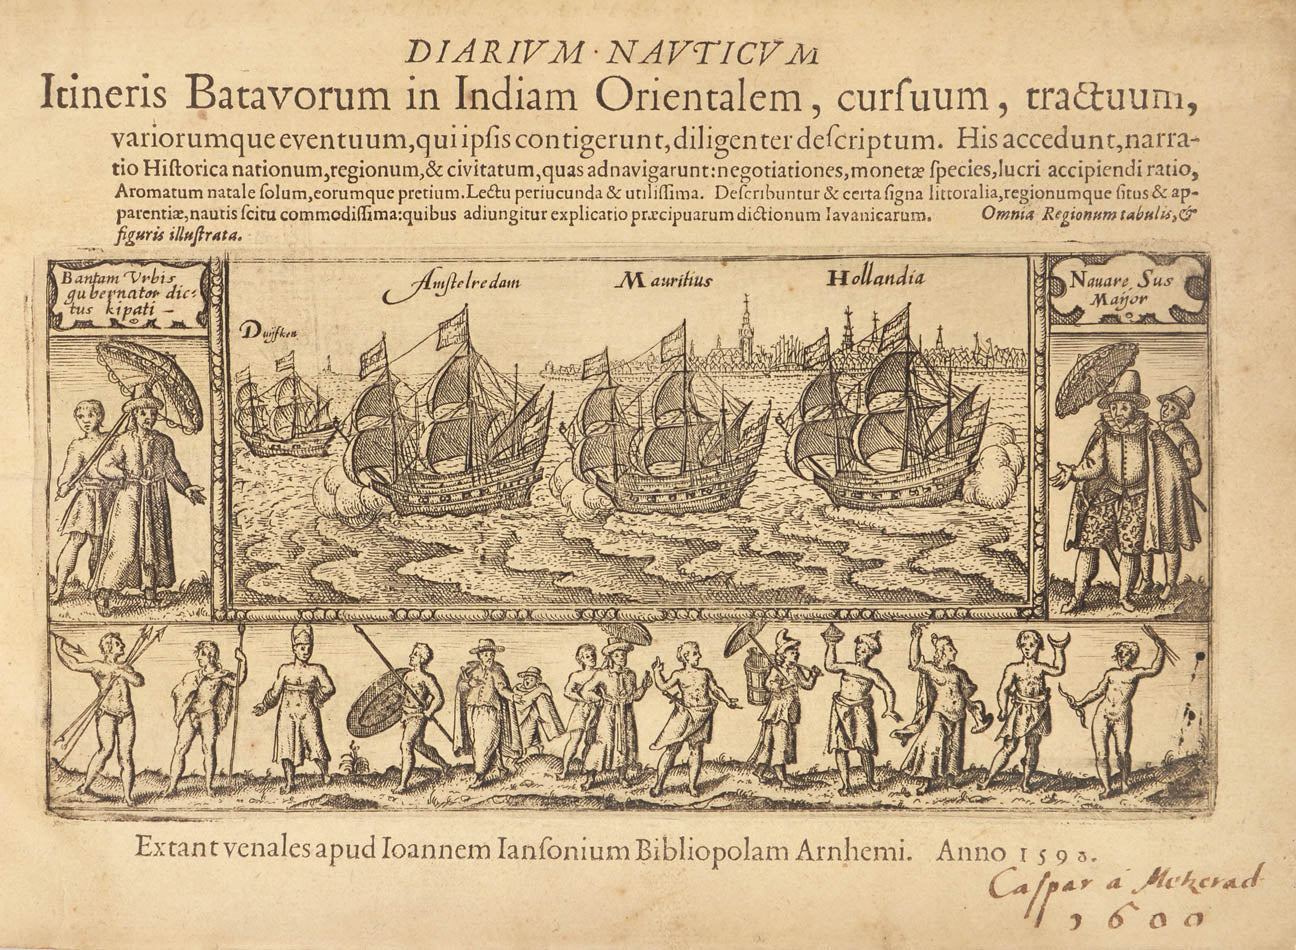 DIARIVM · NAVTICVM
Itineris Batavorum in Indiam Orientalem, curſuum, tractuum,
variorumque eventuum, qui ipſis contigerunt, diligenter deſcriptum. His accedunt, narra-
tio Hiſtorica nationum, regionum, & civitatum, quas adnavigarunt: negotiationes, monetæ ſpecies, lucri accipiendi ratio,
Aromatum natale ſolum, eorumque pretium. Lectu periucunda & utiliſſima. Deſcribuntur & certa ſigna littoralia, regionumque ſitus & ap-
parentiæ, nautis ſcitu commodiſſima: quibus adiungitur explicatio præcipuarum dictionum Iavanicarum. Omnia Regionum tabulis, &
figuris illuſtrata.
Bantam Vrbis
gubernator dic-
tus kipati –
Duijfken
Amſtelredam
Mauritius
Hollandia
Navare Sus
Maijor
Extant venales apud Ioannem Ianſonium Bibliopolam Arnhemi. Anno 1598.
Caſpar á
1600